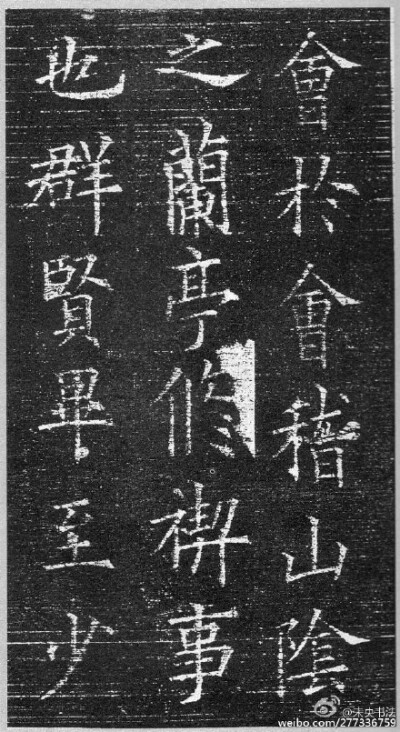 會於會稽山陰
之蘭亭修禊事
也群賢畢至少
@未央书法
weibo.com/277336759